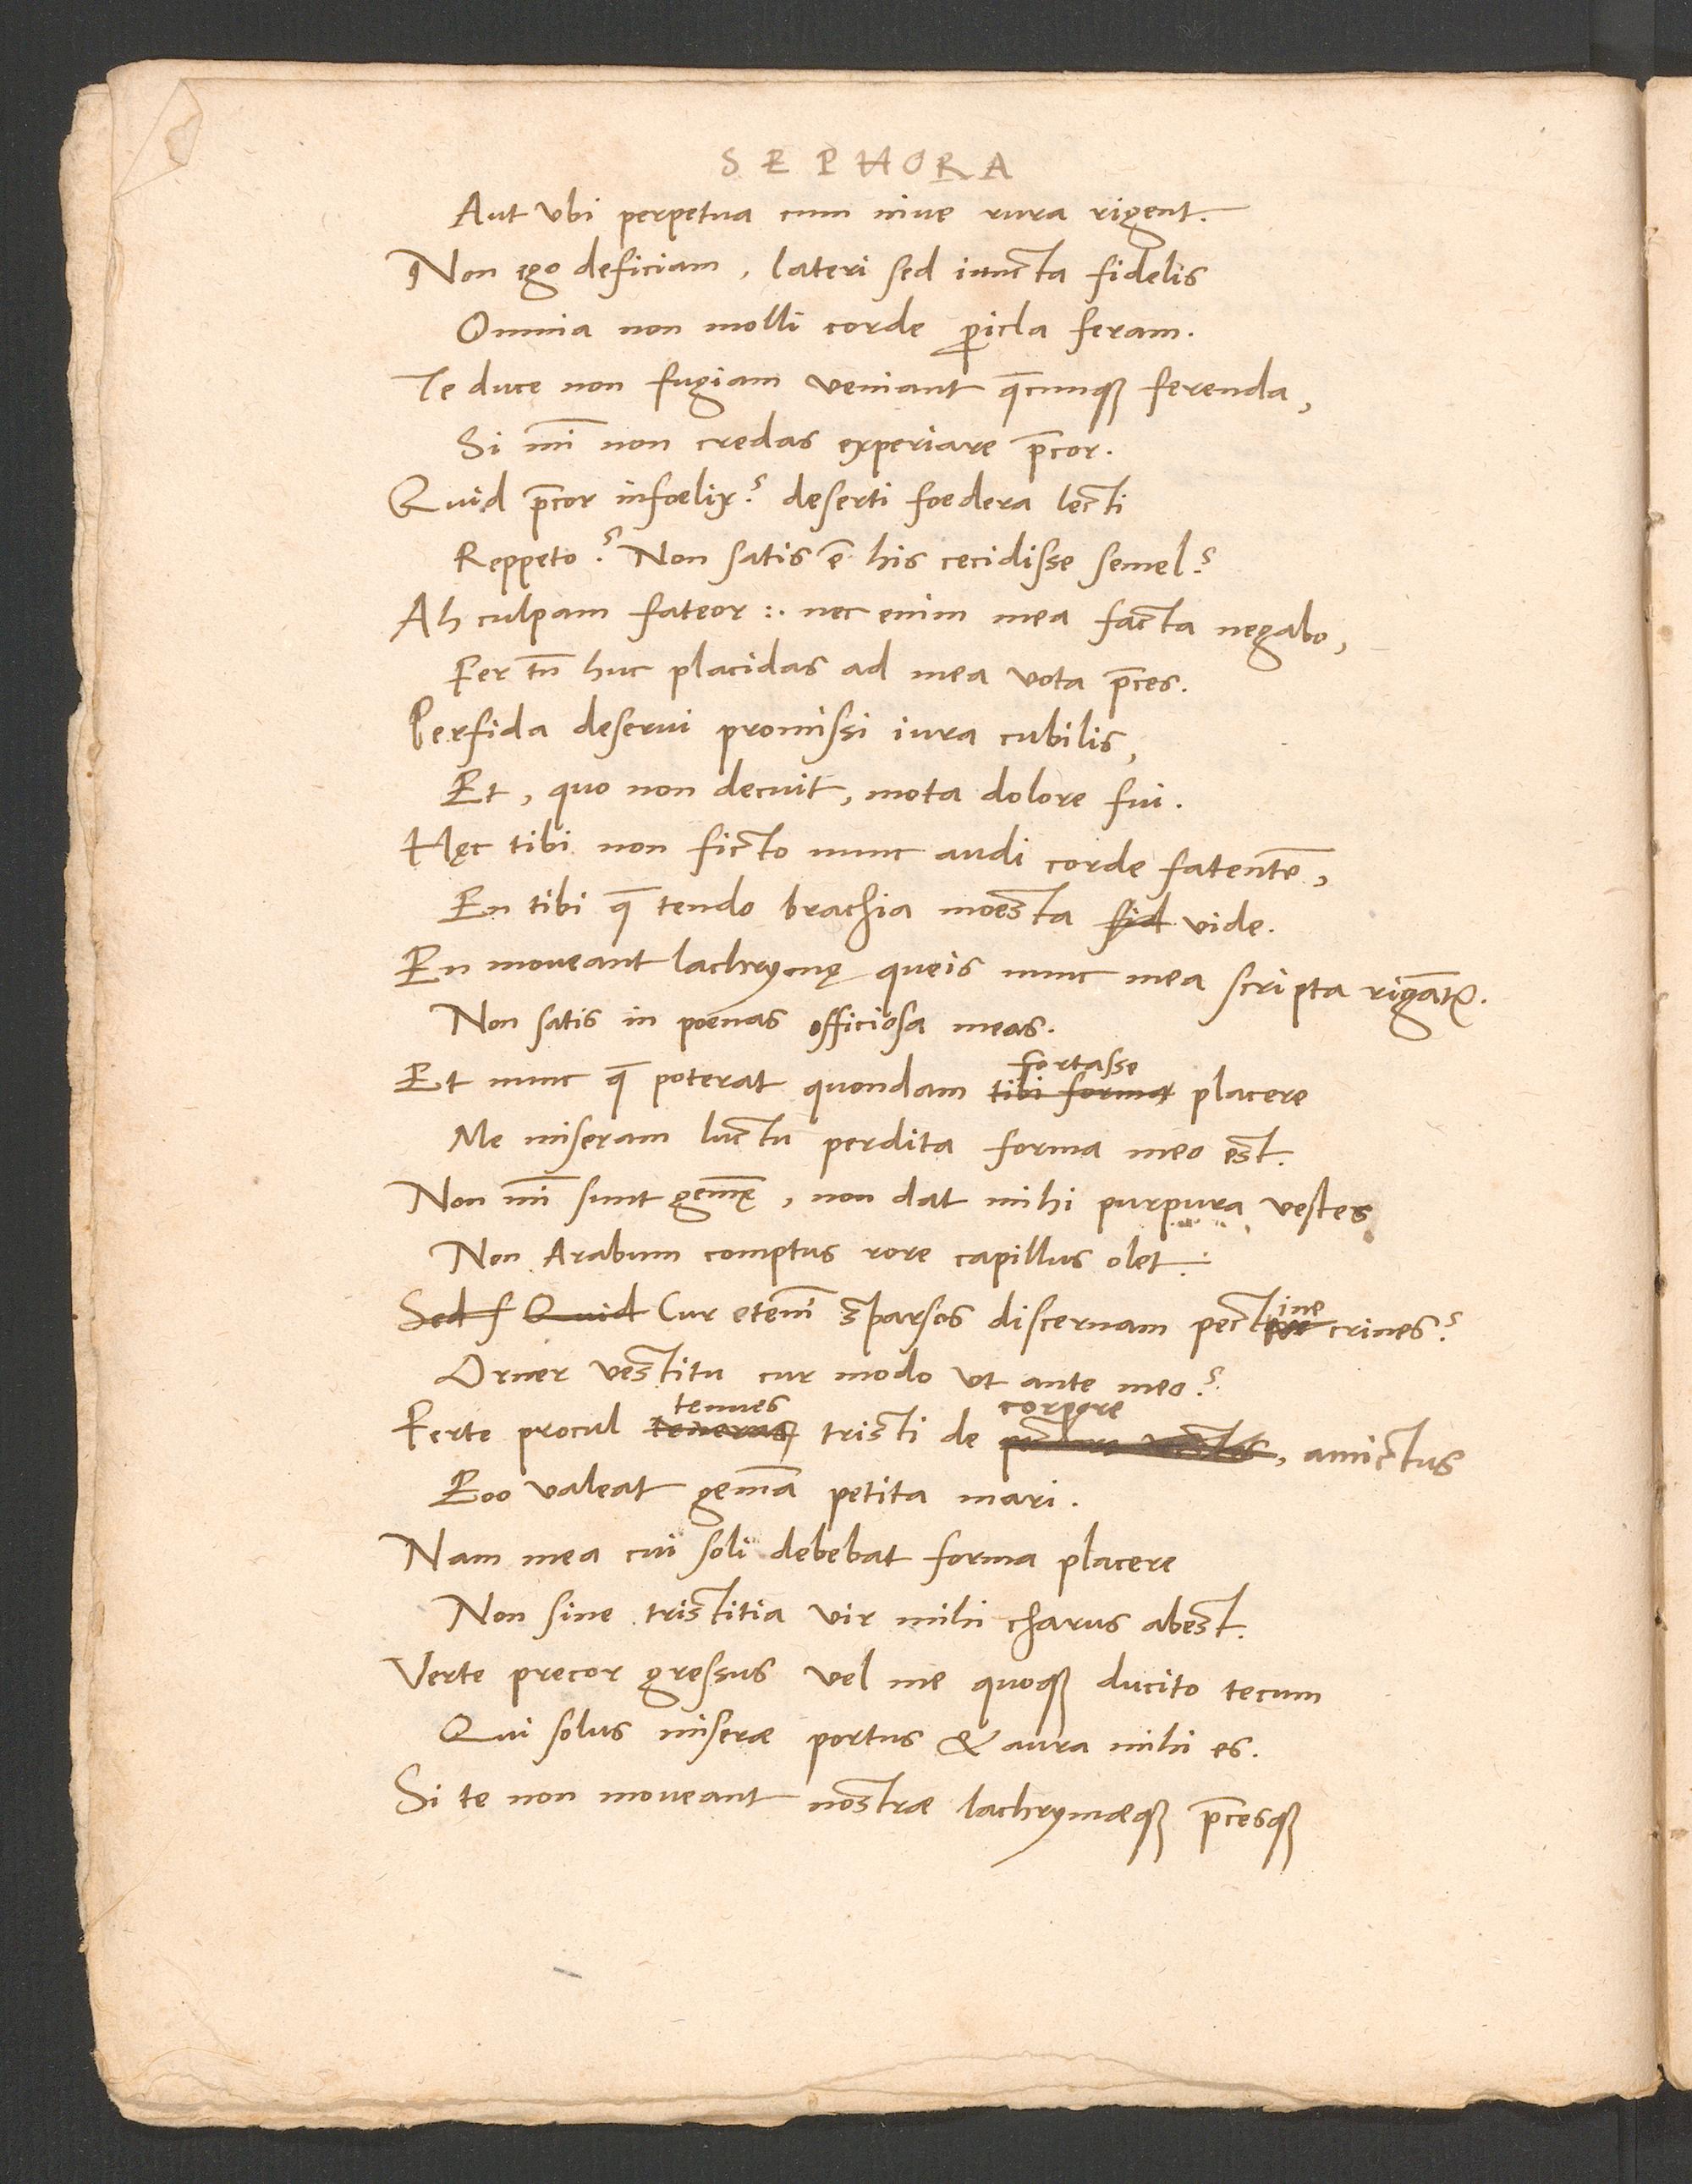 SEPHORA
Aut vbi perpetua cum niue rura rigent.
Non ego deficiam, lateri sed iuncta fidelis
Omnia non molli corde p̱icla feram.
Te duce non fugiam veniant q̄cunqꝫ ferenda,
Si m̄i non credas experiare p̄cor.
Quid p̄cor infoelix? deserti foedera lecti
Reppeto? Non satis ē his cecidisse semel?
Ah culpam fateor :. nec enim mea facta negabo,
Fer tn̄ huc placidas ad mea vota p̄ces.
Perfida deserui promissi iura cubilis,
Et, quo non decuit, mota dolore fui.
Hęc tibi non ficto nunc audi corde fatentē,
En tibi q̄ tendo brachia moesta vide.
En moueant lachrymę queis nunc mea scripta rigāt᷑.
Non satis in poenas officiosa meas.
fortasse
Et nunc q̄ poterat quondam tibi forma placere
Me miseram luctu perdita forma meo est.
Non m̄i sunt gem̄ę, non dat mihi purpura vestes
Non Arabum comptus rore capillus olet.
Sed f Quid Cur etenī sparsos discernam pectine crines?
Orner vestitu cur modo vt ante meo?
tenues corpore
Ferte procul teneras tristi de pectore vestes, amictus
Eoo valeat gem̄a petita mari.
Nam mea cui soli debebat forma placere
Non sine tristitia vir mihi charus abest.
Verte precor gressus vel me quoqꝫ ducito tecum
Qui solus miseræ portus & aura mihi es.
Si te non moueant nostræ lachrymæqꝫ p̄cesqꝫ